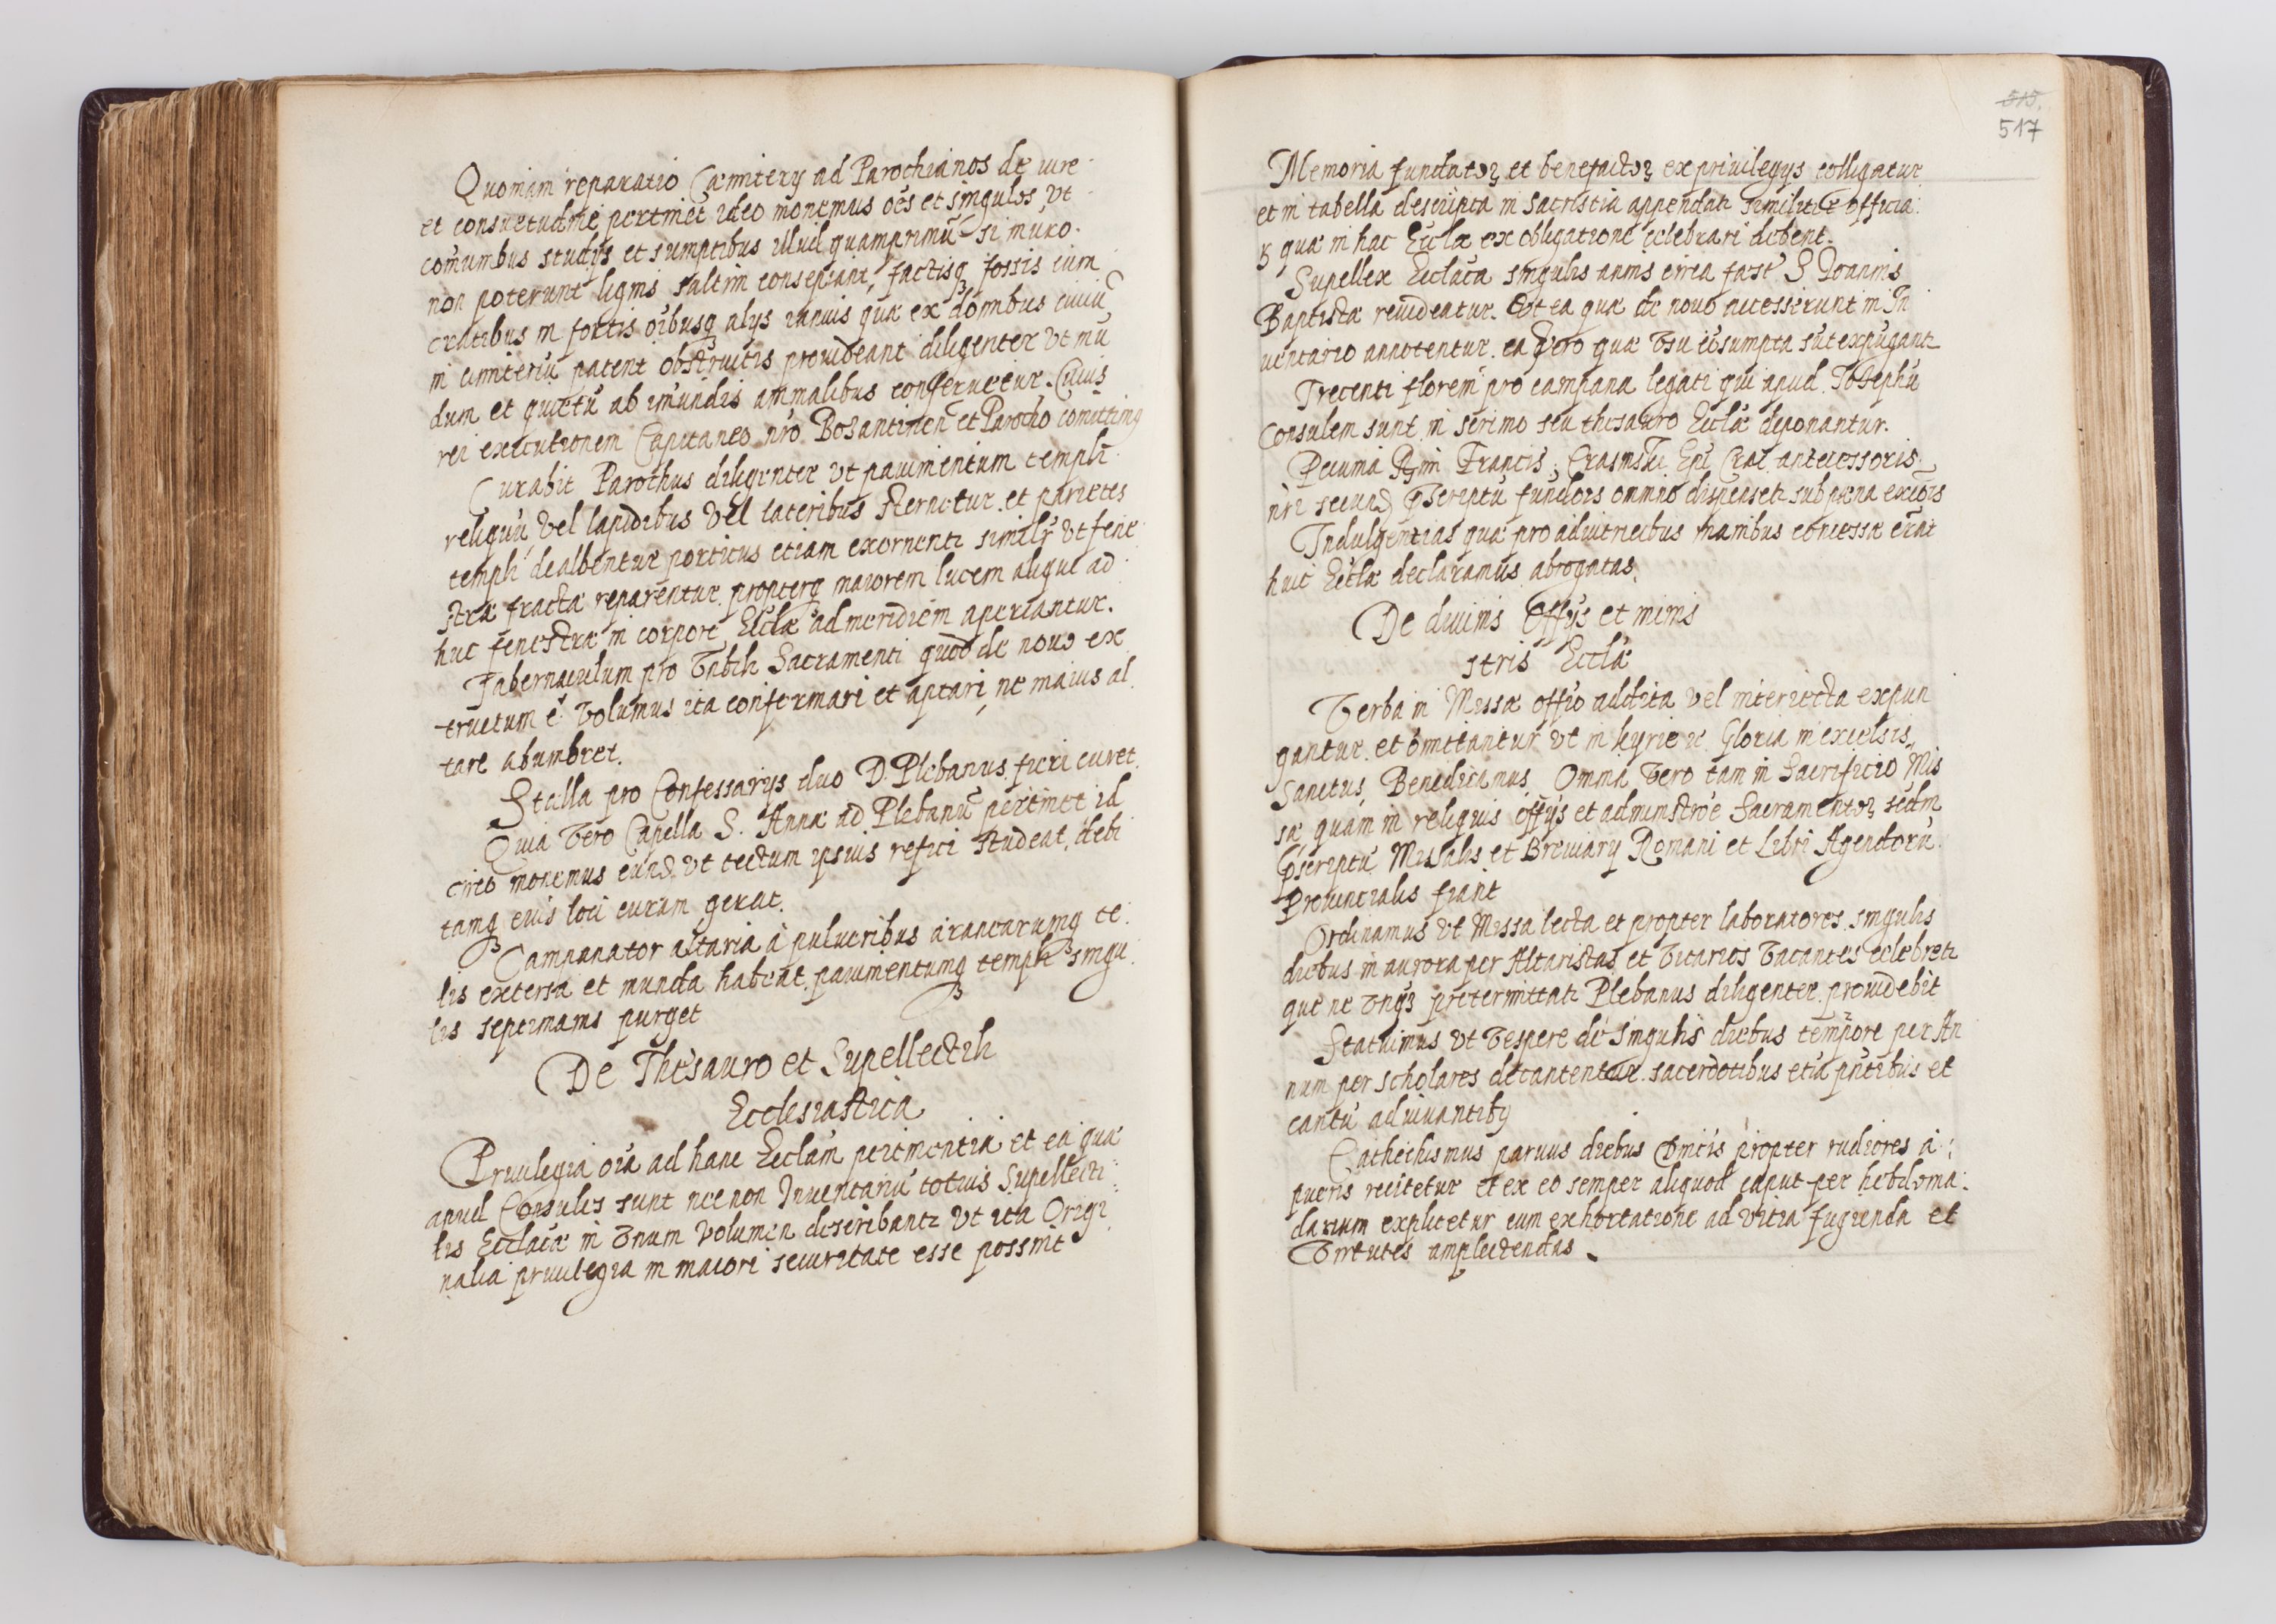 Quoniam reparatio Cæmiterij ad Parochianos de iure
et consuetudine pertinet ideo monemus oēs et singulos, vt
comunibus studijs et sumptibus illud quamprimū si muro
non poterunt lignis saltim consepiant, factisq fossis cum
cratibus in portis oībusq alijs ianuis quæ ex domibus ciuiū
in cimiteriū patent obstructis prouideant diligenter vt mu
dum et quietū ab imundis animalibus conseruetur. Cuius
rei executionem Capitaneo nro Bosantinen et Parocho comittimq
Curabit Parochus diligenter vt pauimentum templi
reliquū vel lapidibus vel lateribus sternetur et parietes
templi dealbentur porticus etiam exornentr similr vt fene
stræ fractæ reparentur propterq maiorem lucem aliquæ ad
huc fenestræ in corpore Ecclæ ad meridiem aperiantur.
Tabernaculum pro Vnbili Sacramenti quod de nouo ex
tructum ē volumus ita confirmari et aptari, ne maius al
tare abumbret.
Stalla pro Confessarijs duo D. Plebanus fieri curet.
Quia vero Capella S. Annæ ad Plebanū pertinet id
circo monemus eund vt tectum ipsius refici studeat, debi
tamq eius loci curam gerat.
Campanator altaria à pulueribus arancarumq te
lis extersa et munda habeat pauimentumq templi singu
lis septimanis purget
De Thesauro et Supellectili
Ecclesiastica
Priuilegia oīa ad hanc Ecclam pertinentia et ea quæ
apud Consules sunt necnon Inuentariū totius Supellecti
lis Ecclacæ in vnum volumen describantr vt ita Origi
nalia priuilegia in maiori securitate esse possint
515.
517
Memoria fundatoꝝ et benefactoꝝ ex priuilegijs colligatur
et in tabella descripta in sacristia appendatr similiter officia
quæ in hac Eccla ex obligatione celebrari debent.
Supellex Ecclaca singulis annis circa fest S Ioannis
Baptistæ reuideatur. Et ea quæ de nouo accesserunt in In
uentario annotentur. ea vero quæ vsu cōsumpta sūt expūgantr
Trecenti floreni pro campana legati qui apud Iosephū
Consulem sunt in scrinio seu thesauro Ecclæ deponantur.
Pecunia Rmi Francis: Crasinski Epi Crac antecessoris
nri secund pscriptū fundōis omnino dispensetr sub pæna excōis
Indulgentias quæ pro adiutricibus manibus concessæ erāt
huic Ecclæ declaramus abrogatas.
De diuinis Offijs et mini
stris Ecclæ
Verba in Missæ offio addita vel interiecta expun
gantur et omittantur vt in kyrie et Gloria in excelsis,
Sanctus, Benedicamus, Omnia vero tam in Sacrificio Mis
sæ quam in reliquis offijs et administrōe Sacramentoꝝ secdm
pscriptū Missalis et Breuiarij Romani et Libri Agendorū
Prouincialis fiant
Ordinamus vt Missa lecta et propter laboratores singulis
diebus in aurora per Altaristas et Vicarios vacantes celebretr
quæ ne vnqȝ pretermittatr Plebanus diligenter prouidebit
Statuimus vt vesperæ de singulis diebus tempore per An
num per scholares decantentur sacerdotibus etiā pntibus et
cantū adiuuantibȝ
Cathechismus paruus diebus Dnicis propter rudiores à
pueris recitetur et ex eo semper aliquod caput per hebdoma
darium explicetur cum exhortatione ad vitia fugienda et
virtutes amplectendas